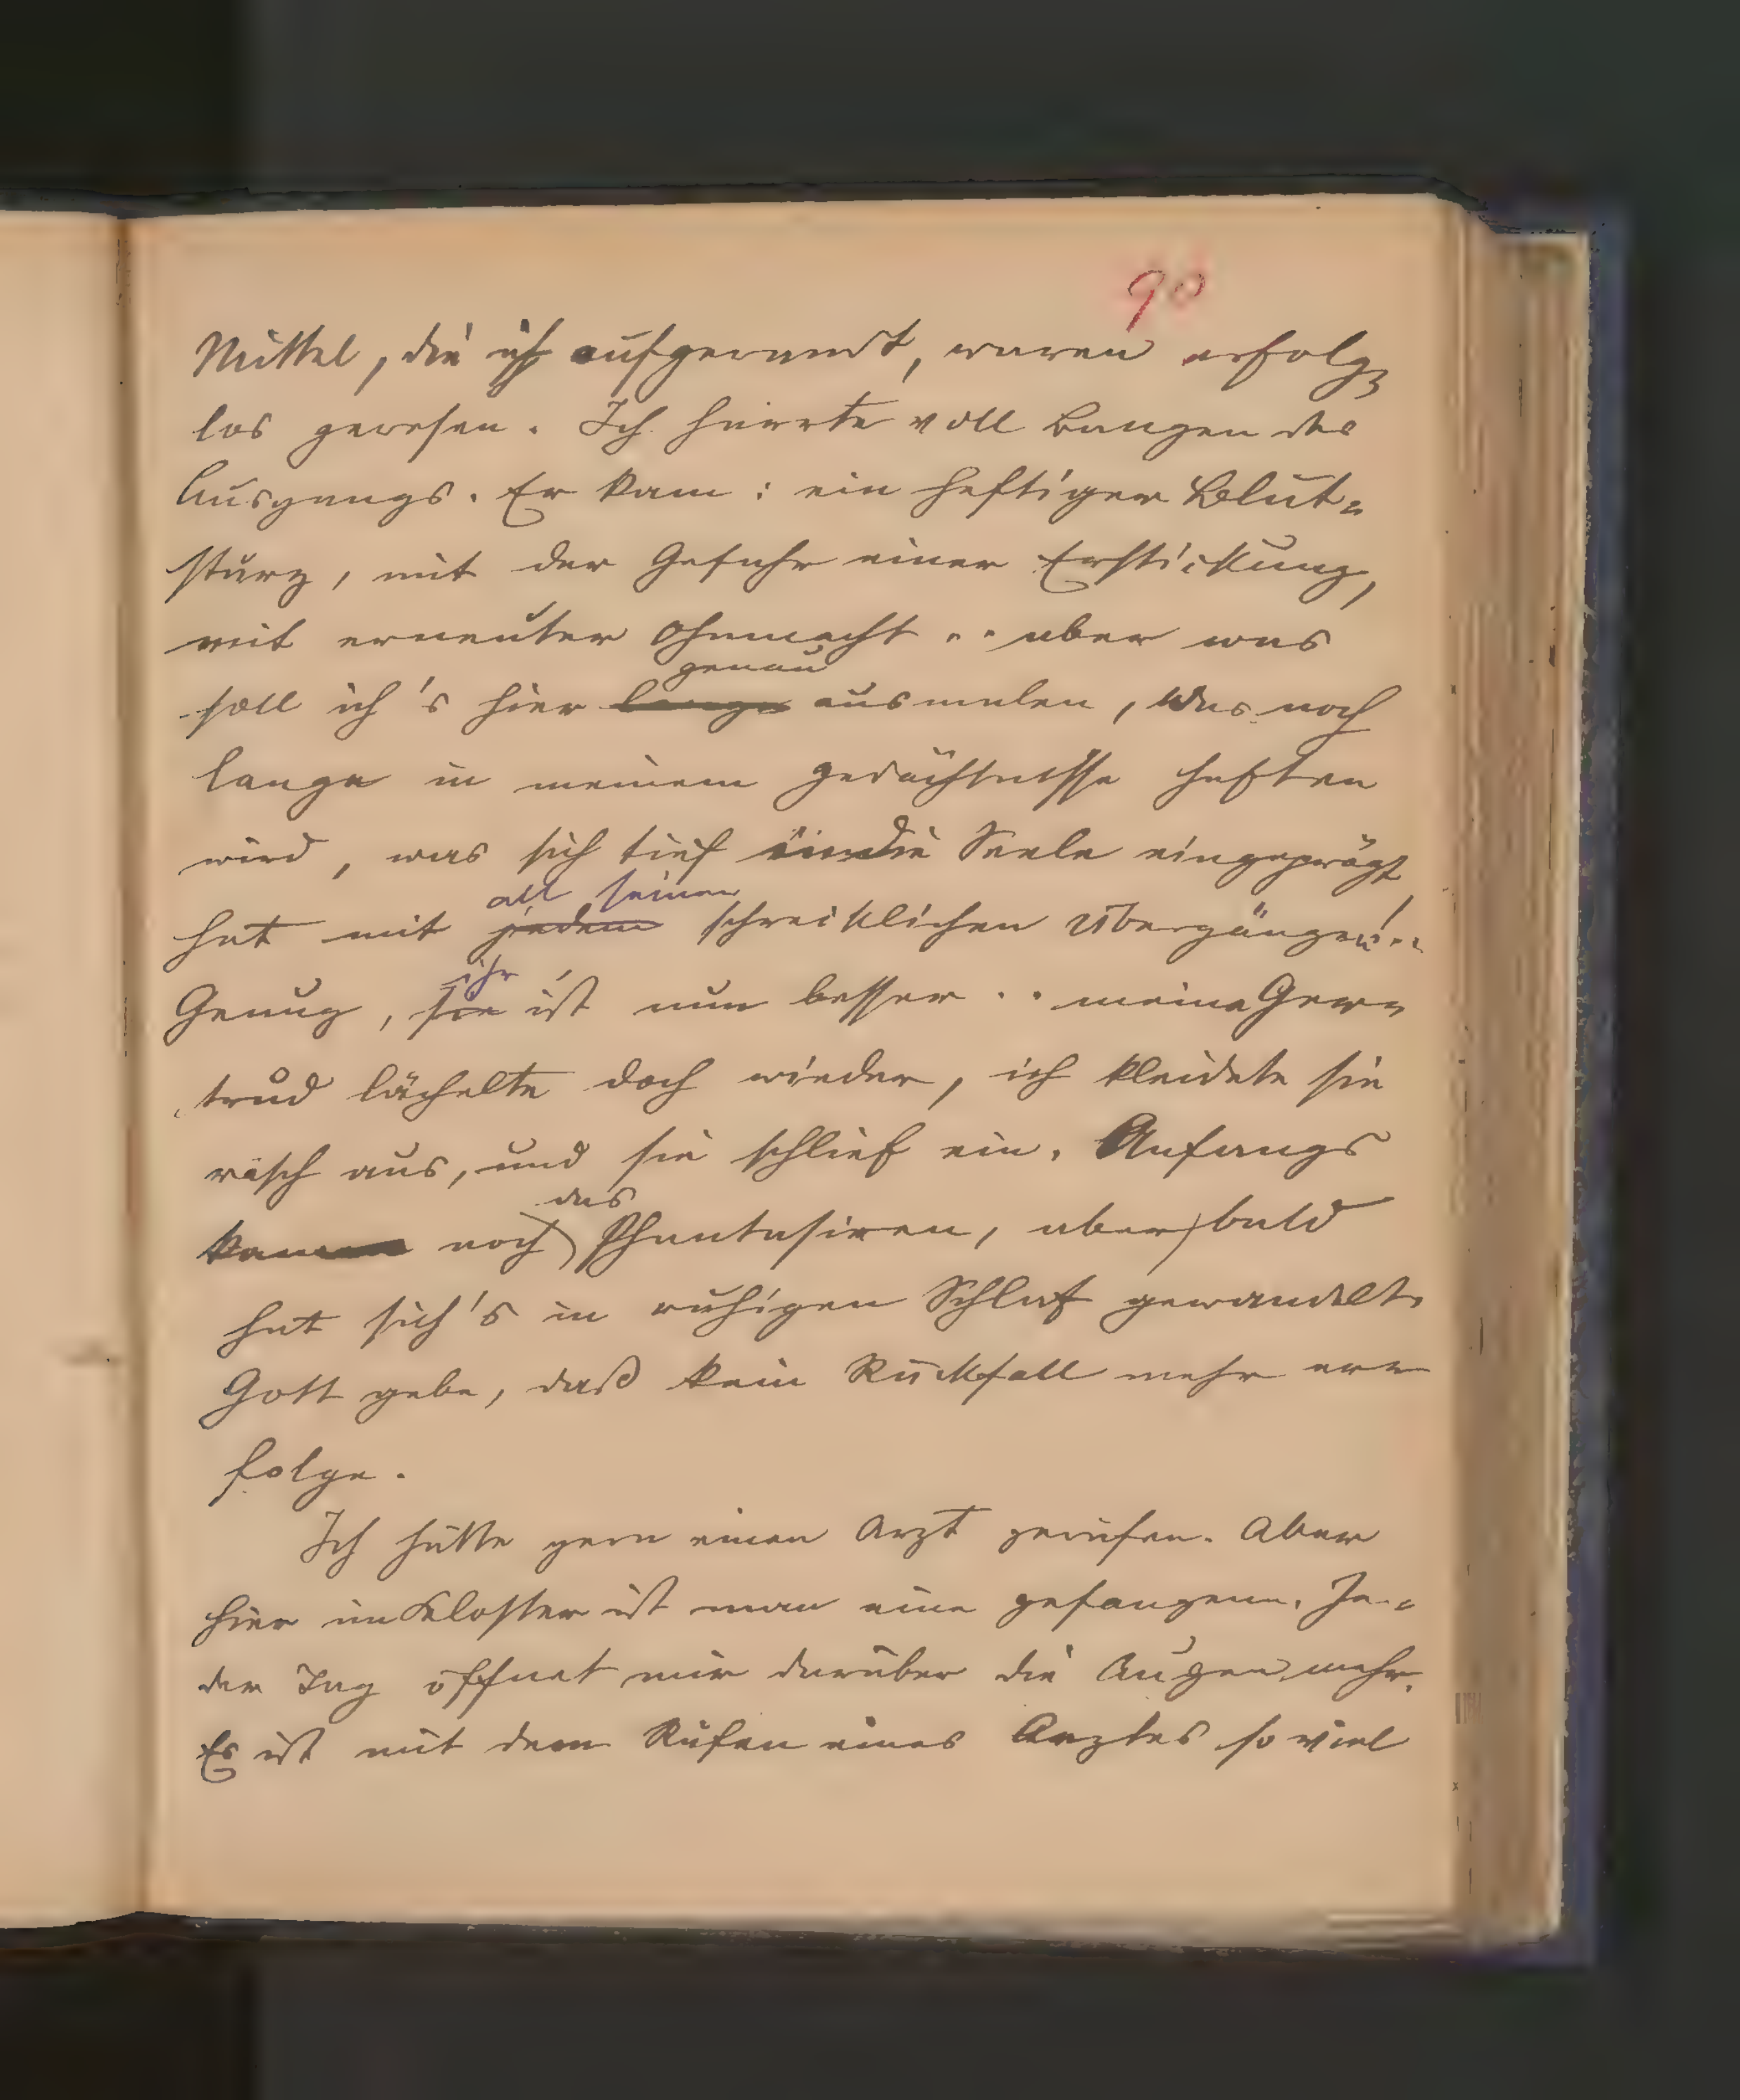 90
Mittel, die ich aufgewandt, waren erfolg-
los gewesen. Ich harrte voll Bangen des
Ausgangs. Er kam: ein heftiger Blut-
sturz, mit der Gefahr einer Erstickung,
mit erneuter Ohnmacht .. aber was
genau
soll ich's hier lange ausmalen, was noch
lange in meinem Gedächtnisse haften
wird, was sich tief in die Seele eingeprägt
all seinen
hat mit jedem schrecklichen Übergängen!..
ihr
Genug, sie ist nun besser .. meine Ger-
trud lächelte doch wieder, ich kleidete sie
rasch aus, und sie schlief ein. Anfangs
das
kam noch Phantasiren, aber bald
hat sich's in ruhigen Schlaf gewandelt.
Gott gebe, daß kein Rückfall mehr er-
folge.
Ich hätte gern einen Arzt gerufen. Aber
hier im Kloster ist man eine gefangene. Je-
der Tag öffnet mir darüber die Augen mehr.
Es ist mit dem Rufen eines Arztes so viel